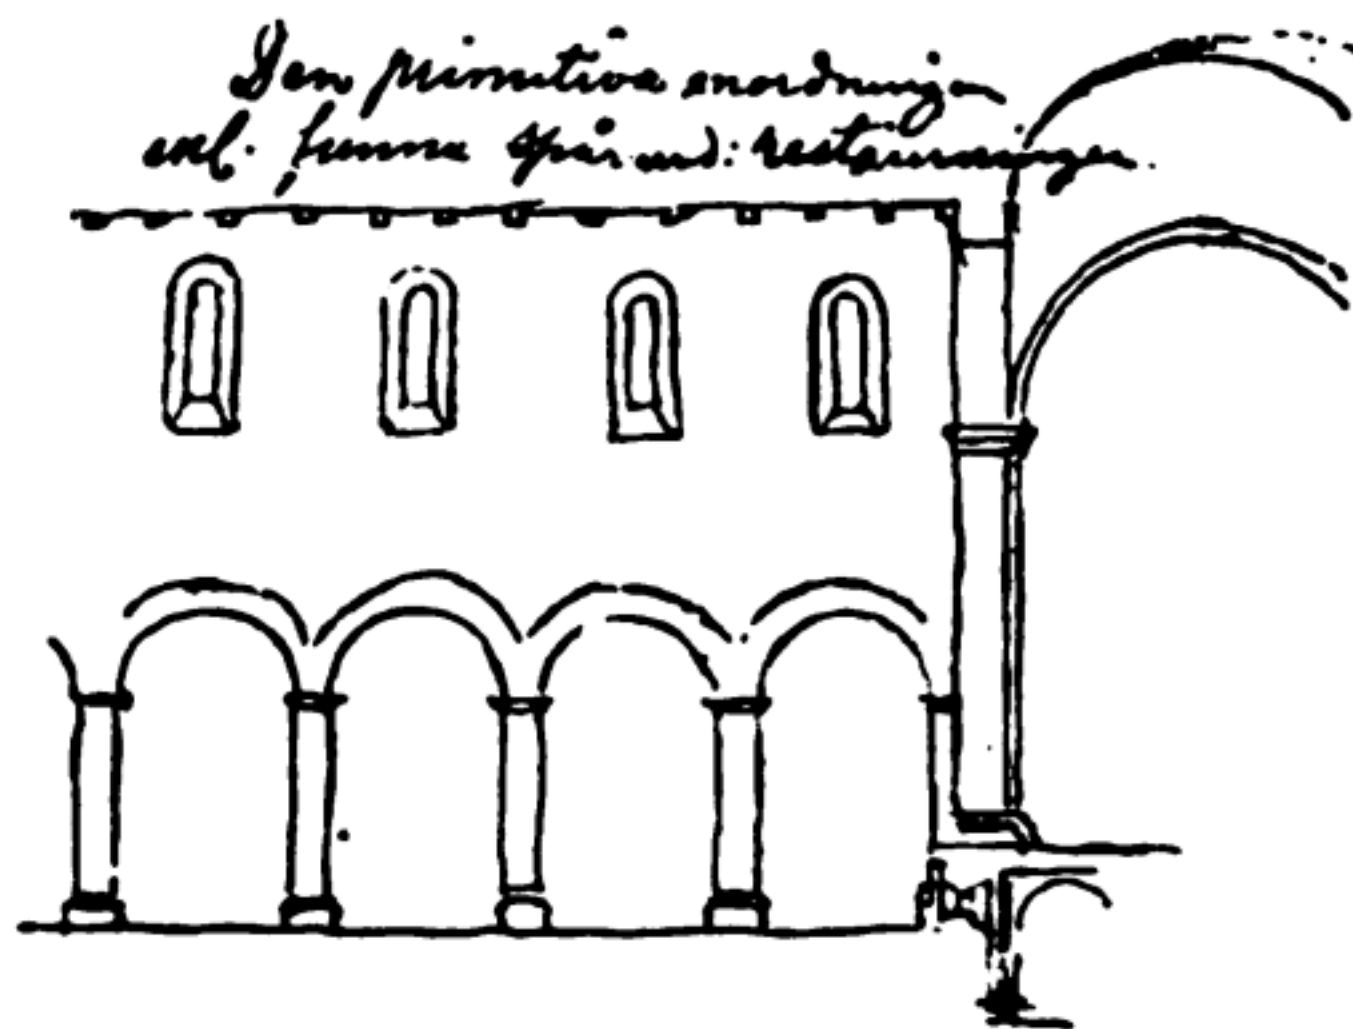 Den primitiva anordningen
enl. funna spår vid: restaureringen.